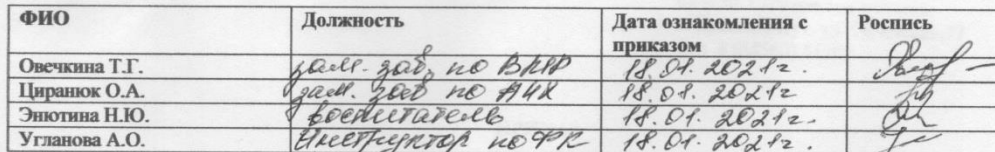 ФИО Должность Дата ознакомления с приказом Роспись
Овечкина Т.Г. зам. зав. по ВМР 18.01.2021г.
Циранюк О.А. зам. зав по АЧХ 18.01.2021г
Энютина Н.Ю. воспитатель 18.01.2021г.
Угланова А.О. Инструктор по ФК 18.01.2021г.